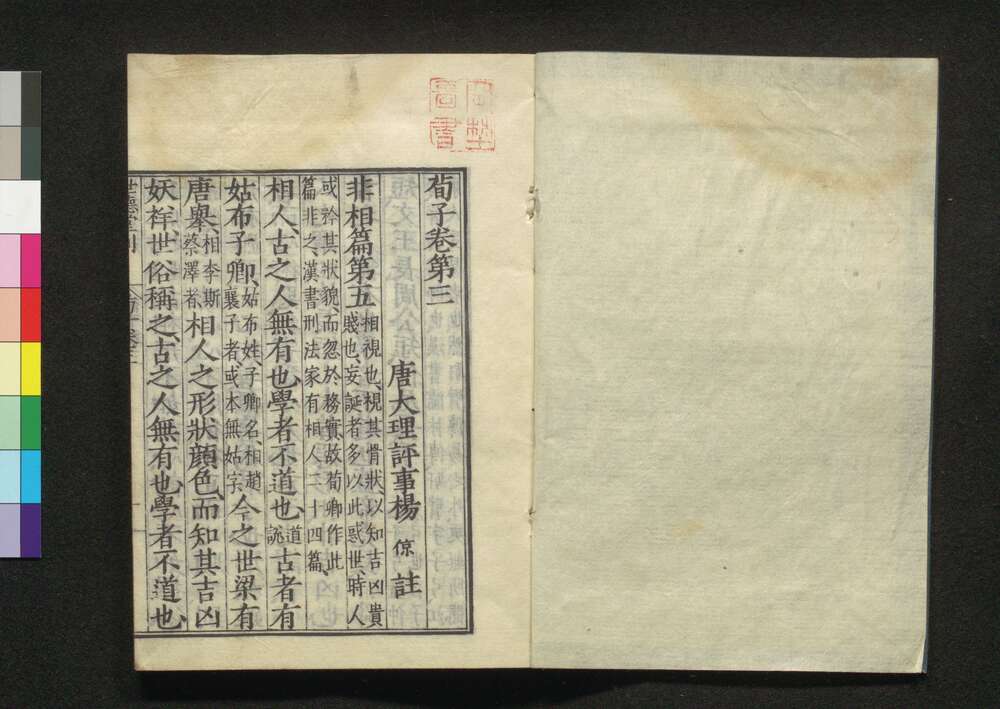 荀子卷第三
唐大理評事楊 倞 註
非相篇第五 相視也、視其骨狀、以知吉凶貴
賤也、妄誕者多以此惑世、時人
或矜其狀貌、而忽於務實、故荀卿作此
篇非之、漢書刑法家有相人二十四篇、
相人、古之人無有也、學者不道也、道
說 古者有
姑布子卿、姑布姓、子卿名、相趙
襄子者、或本無姑字、今之世梁有
唐舉、相李斯
蔡澤者、相人之形狀顏色、而知其吉凶
妖祥、世俗稱之、古之人無有也、學者不道也、